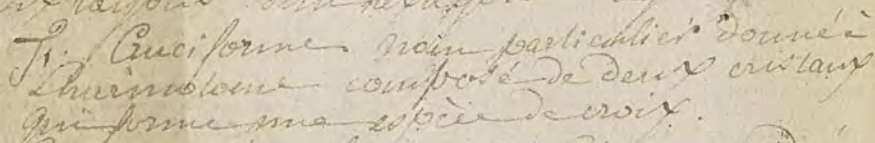 Cruciforme nom particulier donné à
L'harmotome composé de deux cristaux
qui forme une espèce de croix.